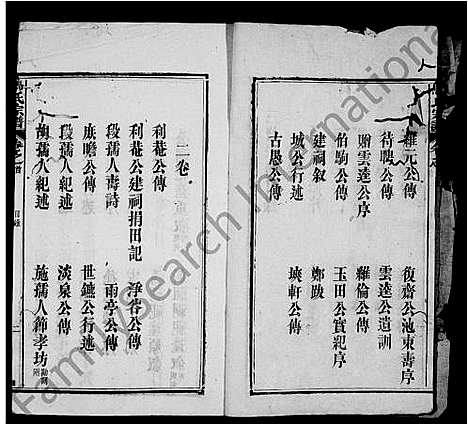 維元公傳　復齋公池東壽序
待聘公傳　雲達公遺訓
贈雲達公序　羅倫公傳
伯駒公傳　玉田公實紀序
建祠叙　鄭跋
城公行述　埉軒公傳
古愚公傳
二卷
利菴公傳
利菴公建祠捐田記　浮谷公傳
段孺人壽詩　雨亭公傳
庶瞻公傳　世鑣公行述
段孺人紀述　淡泉公傳
孺人紀述　施孺人節孝坊
氏宗譜
目錄
FamilySearch International